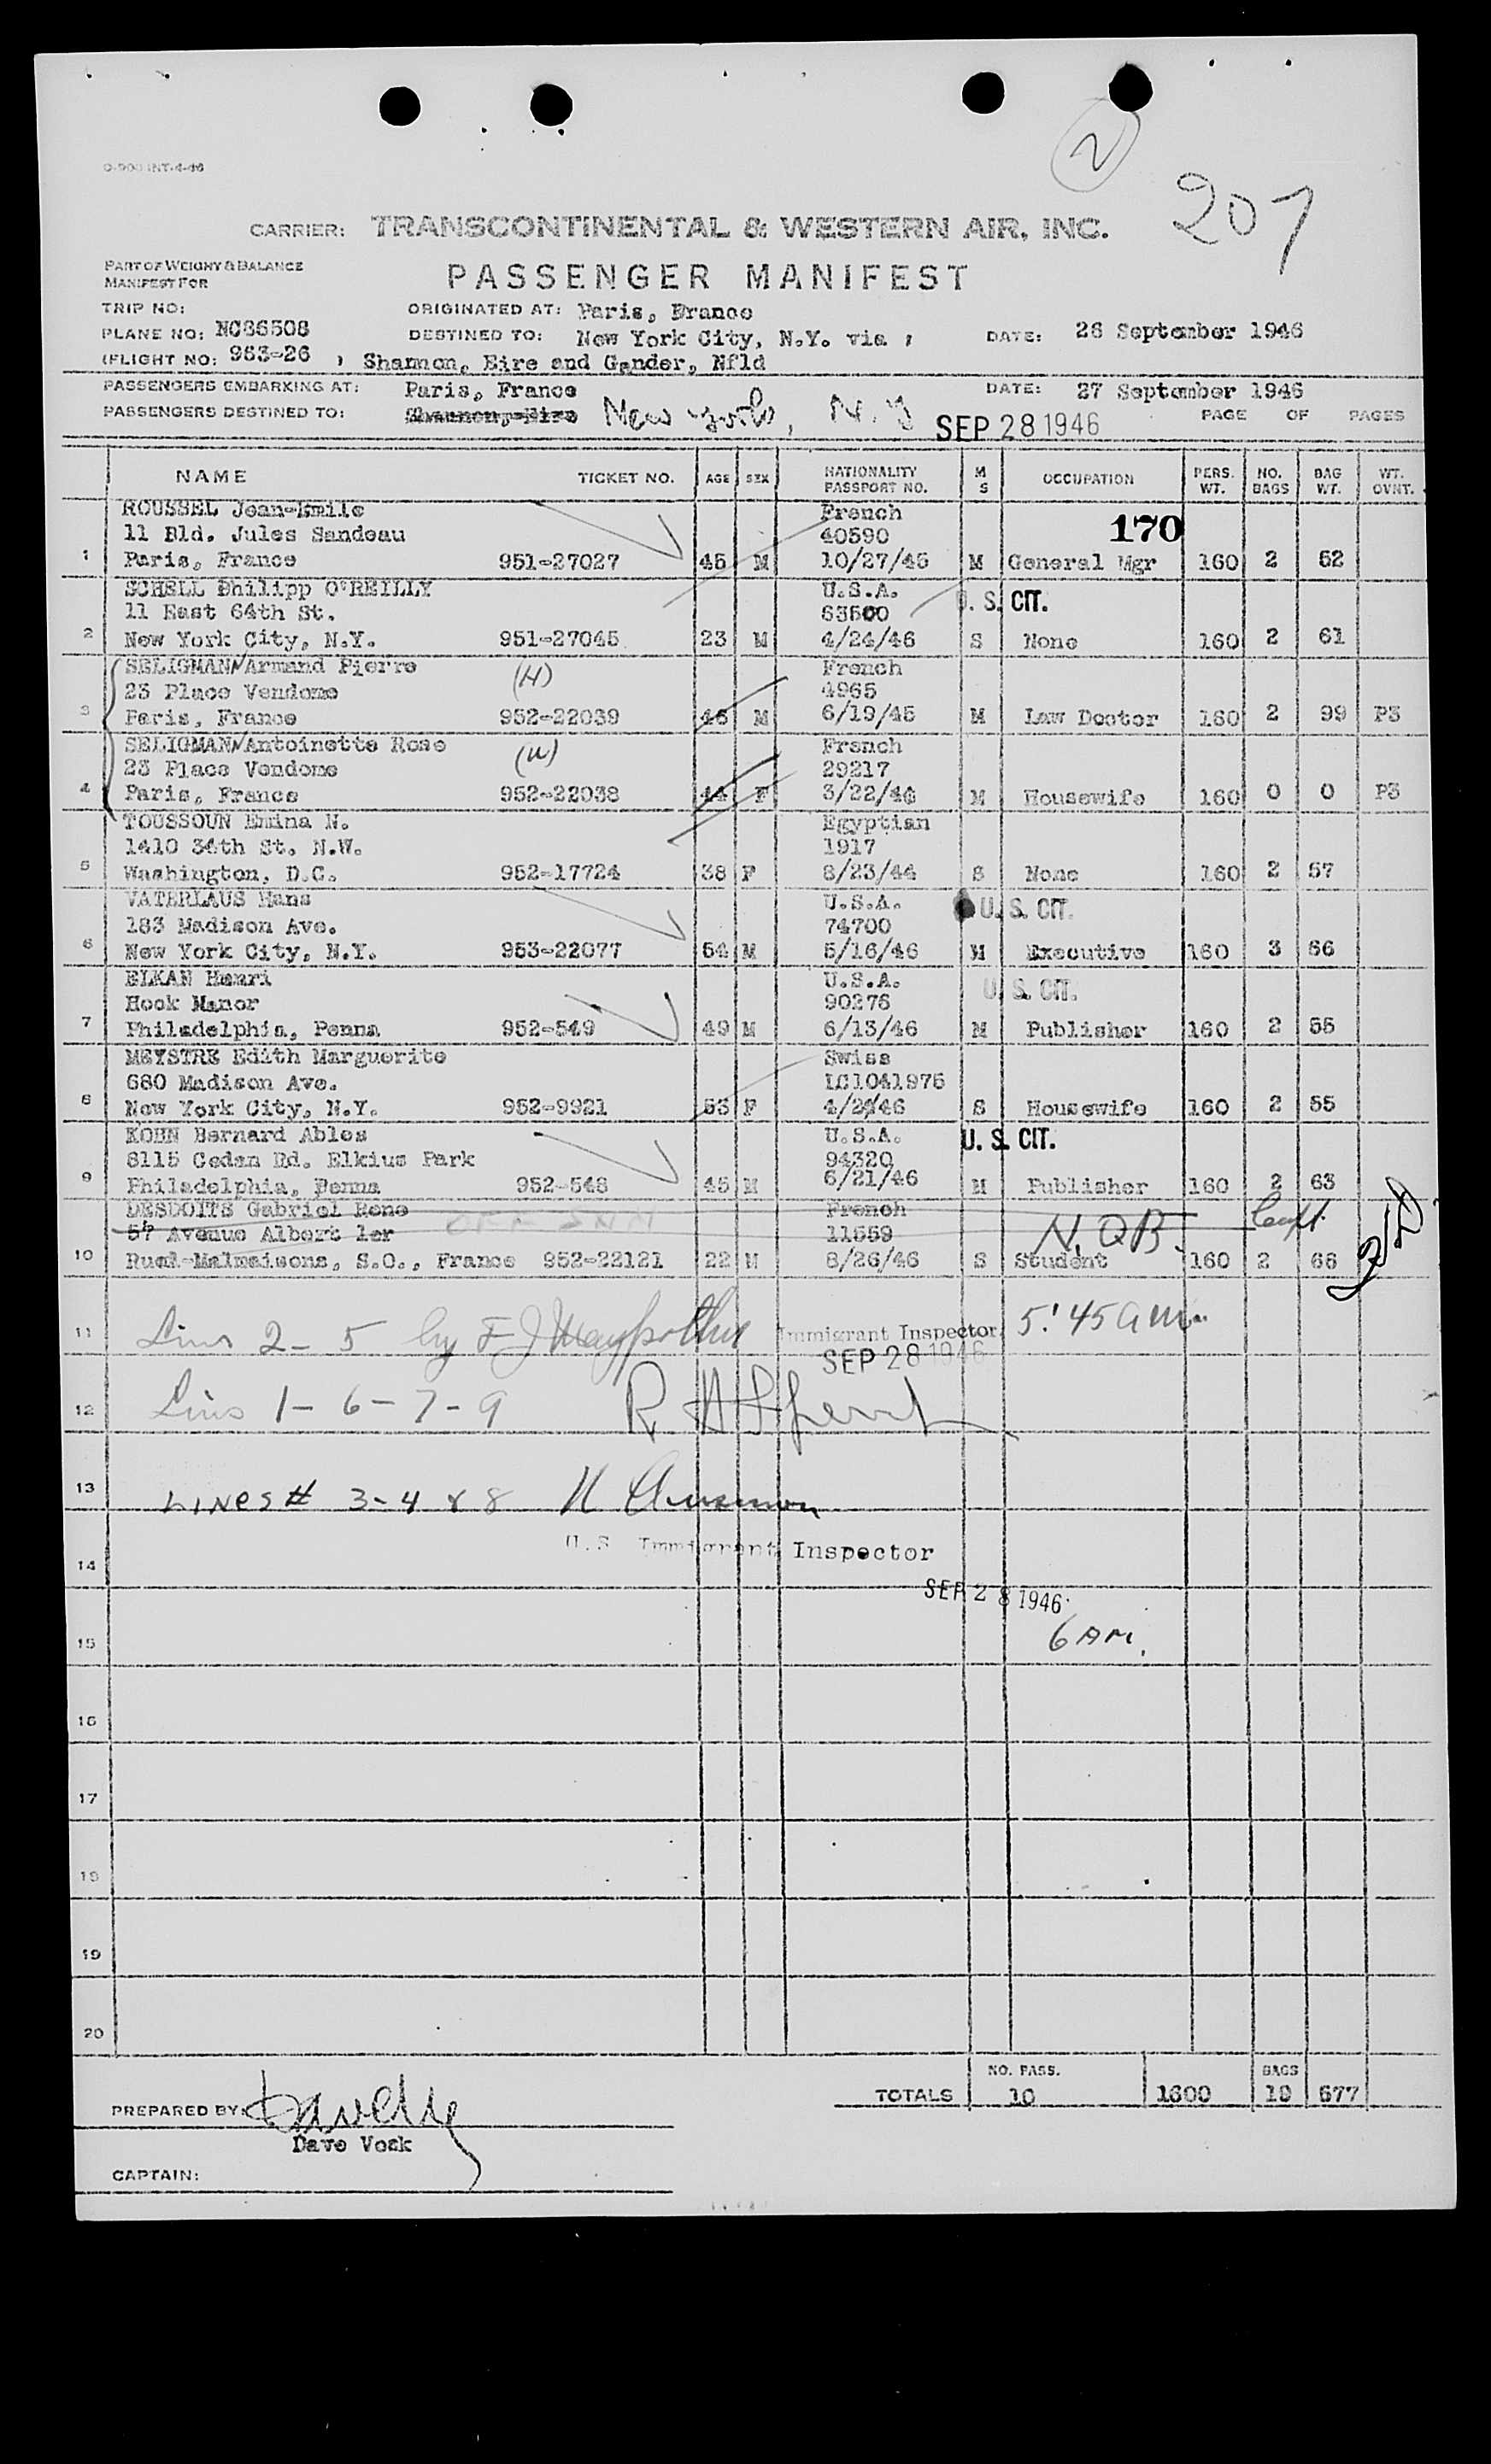 O-900 INT-4-46
2
207
CARRIER: TRANSCONTINENTAL & WESTERN AIR, INC.
PART OF WEIGHT & BALANCE
MANIFEST FOR
PASSENGER MANIFEST
TRIP NO: ORIGINATED AT: Paris, France
PLANE NO: NC86508 DESTINED TO: New York City, N.Y. via , DATE: 26 September 1946
(FLIGHT NO: 953-26 , Shannon, Eire and Gander, Nfld
PASSENGERS EMBARKING AT: Paris, France DATE: 27 September 1946
PASSENGERS DESTINED TO: Shannon, Eire New York, N.Y SEP 28 1946 PAGE OF PAGES
NAME TICKET NO. AGE SEX NATIONALITY PASSPORT NO. M S OCCUPATION PERS. WT. NO. BAGS BAG WT. WT. OVNT.
ROUSSEL Jean-Emile French
11 Bld. Jules Sandeau 40590 170
1 Paris, France 951-27027 45 M 10/27/45 M General Mgr 160 2 52
SCHELL Philipp O'REILLY U.S.A. U. S. CIT.
11 East 64th St. 63500
2 New York City, N.Y. 951-27045 23 M 4/24/46 S None 160 2 61
SELIGMANN Armand Pierre (H) French
23 Place Vendome 4965
3 Paris, France 952-22039 46 M 6/19/45 M Law Doctor 160 2 99 P3
SELIGMANN Antoinette Rose (W) French
23 Place Vendome 29217
4 Paris, France 952-22038 44 F 3/22/46 M Housewife 160 0 0 P3
TOUSSOUN Emina N. Egyptian
1410 34th St. N.W. 1917
5 Washington, D.C. 952-17724 38 F 8/23/44 S None 160 2 57
VATERLAUS Hans U.S.A. U. S. CIT.
183 Madison Ave. 74700
6 New York City, N.Y. 953-22077 54 M 5/16/46 M Executive 160 3 66
ELKAN Henri U.S.A. U. S. CIT.
Hook Manor 90276
7 Philadelphia, Penna 952-549 49 M 6/13/46 M Publisher 160 2 55
MEYSTRE Edith Marguerite Swiss
680 Madison Ave. LC1041975
8 New York City, N.Y. 952-9921 53 F S Housewife 160 2 55
KOHN Bernard Ables U.S.A. U. S. CIT.
8115 Cedan Rd. Elkius Park 94320
9 Philadelphia, Penna 952-548 45 M 6/21/46 M Publisher 160 2 63
DESDOITS Gabriel Rene OFF SNN French
57 Avenue Albert 1er 11559 N.O.B.
10 Rueil-Malmaisons, S.O., France 952-22121 22 M 8/26/46 S Student 160 2 68
11 Lines 2-5 by Immigrant Inspector 5:45 am
SEP 28 1946
12 Lines 1-6-7-9
13 LINES # 3-4 & 8
14 U.S. Immigrant Inspector
SEP 28 1946
15 6 AM.
16
17
18
19
20
TOTALS NO. PASS. 10 1600 BAGS 19 577
PREPARED BY:
Dave Vosk
CAPTAIN: